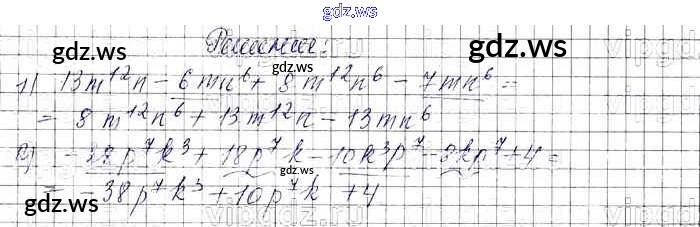 gdz.ws
gdz.ws Решение: gdz.ws
1) 13m¹²n − 6mn⁶ + 8m¹²n⁶ − 7mn⁶ =
= 8m¹²n⁶ + 13m¹²n − 13mn⁶
2) −28p⁷k³ + 18p⁷k − 10k³p⁷ − 8kp⁷ + 4 =
= −38p⁷k³ + 10p⁷k + 4
gdz.ws gdz.ws